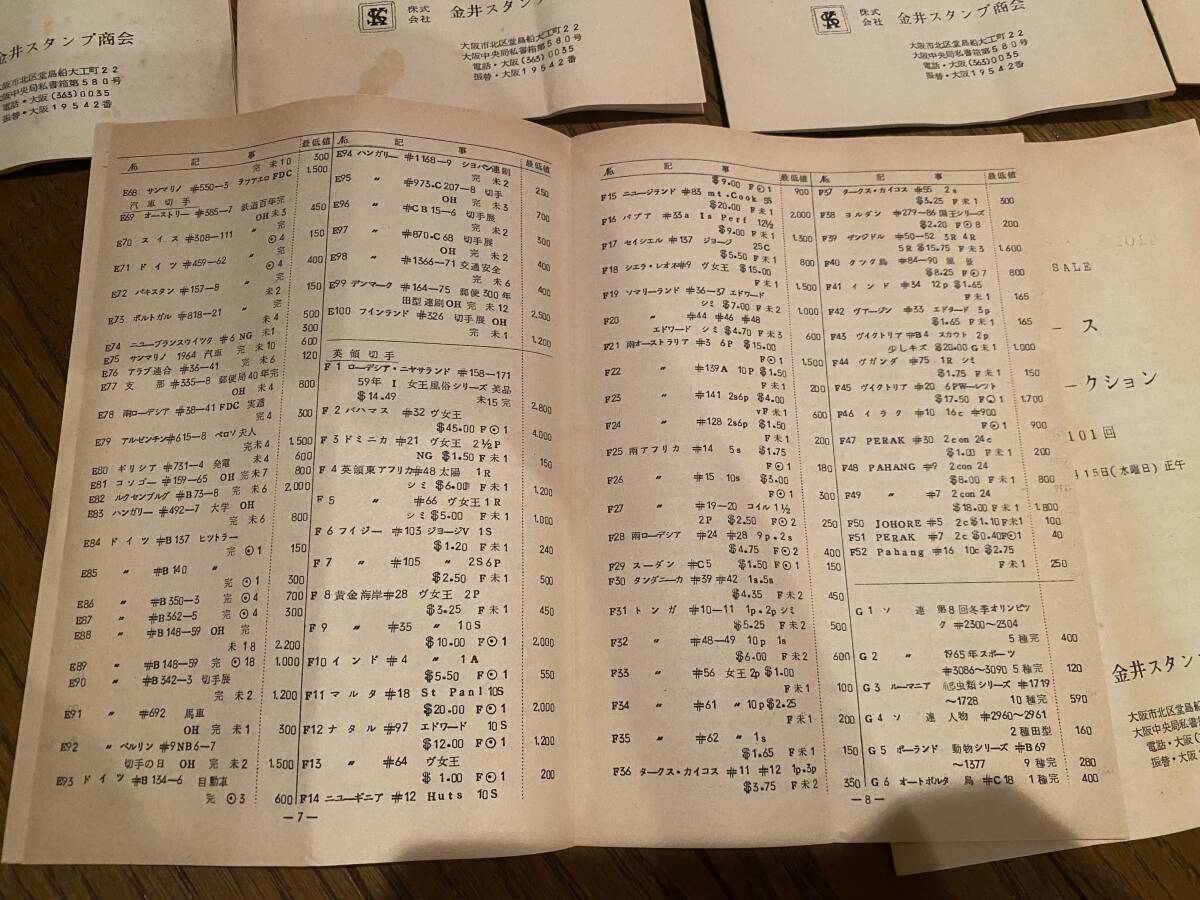 金井スタンプ商会
大阪市北区堂島船大工町22
大阪中央局私書箱第580号
電話・大阪(363)0035
振替・大阪19542番
株式会社 金井スタンプ商会
大阪市北区堂島船大工町22
大阪中央局私書箱第580号
電話・大阪(363)0035
振替・大阪19542番
株式会社 金井スタンプ商会
大阪市北区堂島船大工町22
大阪中央局私書箱第580号
電話・大阪(363)0035
振替・大阪19542番
№ 記事 最低値
完 未10 300
E68 サンマリノ #550-3 ラファエロFDC 1.500
汽車切手
E69 オーストリー #385-7 鉄道百年完
OH未3 450
E70 スイス #308-111 〃 完
⊙4 150
E71 ドイツ #459-62 〃 完
⊙4 400
E72 パキスタン #157-8 〃 完
未2 150
E73 ポルトガル #818-21 〃 完
未4 500
E74 ニューブランスウイツク #6 NG 未1 300
E75 サンマリノ 1964 汽車 完 未10 600
E76 アラブ連合 #36-41 完 120
E77 支那 #335-8 郵便局40年完
OH 未4 800
E78 南ローデシア #38-41 FDC 実逓
完4 300
E79 アルゼンチン #615-8 ペロン夫人
完未4 1.500
E80 ギリシア #731-4 発電 未4 600
E81 コソゴー #159-65 OH 完未7 800
E82 ルクセンブルグ #B73-8 完 未6 2.000
E83 ハンガリー #492-7 大学 OH
完 未6 800
E84 ドイツ #B137 ヒットラー
完 ⊙1 150
E85 〃 #B140 〃
完 ⊙1 300
E86 〃 #B350-3 完 ⊙4 700
E87 〃 #B362-5 完 ⊙4 300
E88 〃 #B148-59 OH 完
未18 2.200
E89 〃 #B148-59 完 ⊙18 1.000
E90 〃 #B342-3 切手展
完 未2 1.200
E91 〃 #692 馬車
OH 完 未1 300
E92 〃 ベルリン #9NB6-7
切手の日 OH 完 未2 1.500
E93 ドイツ #B134-6 自動車
完 ⊙3 600
─7─
№ 記事 最低値
E94 ハンガリー #1168-9 ショパン連刷
完 未2 250
E95 〃 #973.C207-8 切手
OH 完 未3 700
E96 〃 #CB15-6 切手展
完 未2 300
E97 〃 #870.C68 切手展
OH 完 未2 400
E98 〃 #1366-71 交通安全
完 400
E99 デンマーク #164-75 郵便300年
田型連刷OH 完 未12 2,500
E100 フインランド #326 切手展 OH
完 未1 1,200
英領切手
F1 ローデシア・ニヤサランド #158-171
59年 I 女王風俗シリーズ 美品
$14.49 未15完 2,800
F2 バハマス #32 ヴ女王
$45.00 F⊙1 4,000
F3 ドミニカ #21 ヴ女王 2½P
NG $1.50 F未1 150
F4 英領東アフリカ #48 太陽 1R
シミ $6.00 F未1 1,200
F5 〃 #66 ヴ女王 1R
シミ $5.00 F未1 1,000
F6 フイジー #103 ジョージV 1S
$1.20 F未1 240
F7 〃 #105 〃 2S6P
$2.50 F未1 500
F8 黄金海岸 #28 ヴ女王 2P
$3.25 F未1 450
F9 〃 #35 〃 10S
$10.00 F⊙1 2,000
F10 インド #4 〃 1A
$5.50 F⊙1 550
F11 マルタ #18 St Panl 10S
$20.00 F⊙1 2,000
F12 ナタル #97 エドワード 10S
$12.00 F⊙1 1,200
F13 〃 #64 ヴ女王
$1.00 F⊙1 200
F14 ニューギニア #12 Huts 10S
№ 記事 最低値
$9.00 F⊙1 900
F15 ニュージランド #83 mt.Cook 5s
$20.00 F未1 2,000
F16 パプア #33a Is Perf 12½
$9.00 F未1 1,300
F17 セイシエル #137 ジョージ 25C
$5.50 F未1 800
F18 シエラ・レオネ #9 ヴ女王 $15.00
F未1 1,500
F19 ソマリーランド #36-37 エドワード
シミ $7.00 F未2 1,000
F20 〃 #44 #46 #48
エドワード シミ $4.70 F未3 600
F21 南オーストラリア #3 6P $15.00
F⊙1 1,500
F22 〃 #139A 10P $1.50
F未1 200
F23 〃 #141 2s6p $4.00
vF未1 600
F24 〃 #128 2s6p $1.50
F未1 200
F25 南アフリカ #14 5s $1.75
F⊙1 180
F26 〃 #15 10s $3.00
F⊙1 300
F27 〃 #19-20 コイル1½
2P $2.50 F⊙2 250
F28 南ローデシア #24 #28 9p.2s
$4.75 F⊙2 400
F29 スーダン #C5 $1.50 F⊙1 150
F30 タンガニーカ #39 #42 1s.5s
$4.35 F未2 450
F31 トンガ #10-11 1p.2pシミ
$5.25 F未2 500
F32 〃 #48-49 10p 1s
$6.00 F未2 600
F33 〃 #56 女王2p $1.00
F未1 100
F34 〃 #61 〃 10p $2.25
F未1 200
F35 〃 #62 〃 1s
$1.65 F未1 150
F36 タークス・カイコス #11 #12 1p.3p
$3.75 F未2 350
─8─
№ 記事 最低値
F37 タークス・カイコス #55 2s
$3.25 F未1 300
F38 ヨルダン #279-86 国王シリーズ
$2.20 F⊙8 200
F39 ザンジバル #50-52 3R 4R
5R $15.75 F未3 1.600
F40 クック島 #84-90 風景
$8.25 F⊙7 800
F41 インド #34 12p $1.65
F未1 165
F42 ヴァージン #33 エドタード 3p
$1.65 F未1 165
F43 ヴイクトリア #B4 スカウト 2p
少しキズ $20.00 G未1 1.000
F44 ヴガンダ #75 1R シミ
$1.75 F未1 150
F45 ヴイクトリア #20 6PW-レット
$17.50 F⊙1 1.700
F46 イラク #10 16c #900
F⊙1 900
F47 PERAK #30 2con 24c
$1.00 F未1 200
F48 PAHANG #9 2con 24
$8.00 F未1 800
F49 〃 #7 2con 24
$18.00 F未1 1.800
F50 JOHORE #5 2c $1.10 F未1 100
F51 PERAK #7 2c $0.40F⊙1 40
F52 Pahang #16 10c $2.75
F未1 250
G1 ソ連 第8回冬季オリンピツ
ク #2300〜2304
5種完 400
G2 〃 1965年スポーツ
#3086〜3090 5種完 120
G3 ルーマニア 爬虫類シリーズ #1719
〜1728 10種完 590
G4 ソ連 人物 #2960〜2961
2種田型 160
G5 ポーランド 動物シリーズ #B69
〜1377 9種完 280
G6 オートボルタ 鳥 #C18 1種完 400
SALE
ース
ークション
101回
月15日(水曜日)正午
金井スタンプ
大阪市北区堂島船
大阪中央局私書
電話・大阪(
振替・大阪1